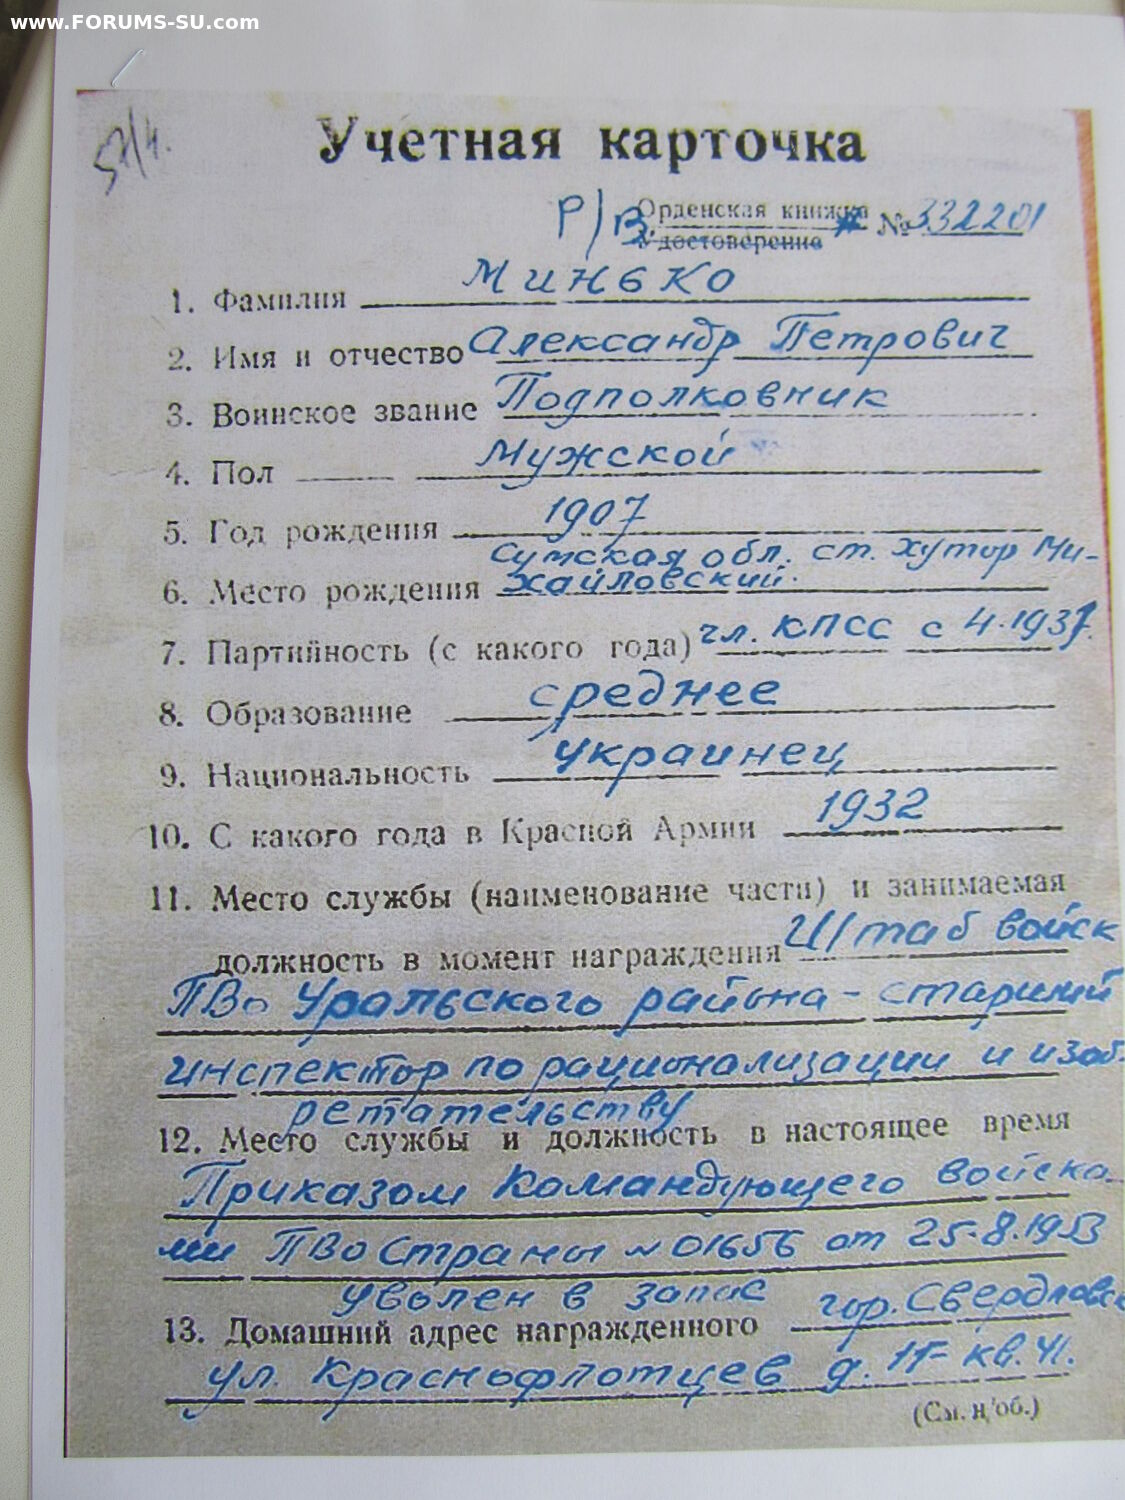 www.FORUMS-SU.com
57/4.
Учетная карточка
Р/В. Орденская книжка № 332201
Удостоверение
1. Фамилия Минько
2. Имя и отчество Александр Петрович
3. Воинское звание Подполковник
4. Пол Мужской
5. Год рождения 1907
Сумская обл. ст. хутор Ми-
6. Место рождения хайловский.
7. Партийность (с какого года) чл. КПСС с 4.1937.
8. Образование среднее
9. Национальность украинец
10. С какого года в Красной Армии 1932
11. Место службы (наименование части) и занимаемая
должность в момент награждения Штаб войск
ПВО Уральского района - старший
инспектор по рационализации и изоб-
ретательству
12. Место службы и должность в настоящее время
Приказом Командующего войска-
ми ПВО Страны № 01656 от 25.8.1953
уволен в запас
13. Домашний адрес награжденного гор. Свердловск
ул. Краснофлотцев д. кв. 41.
(См. н/об.)